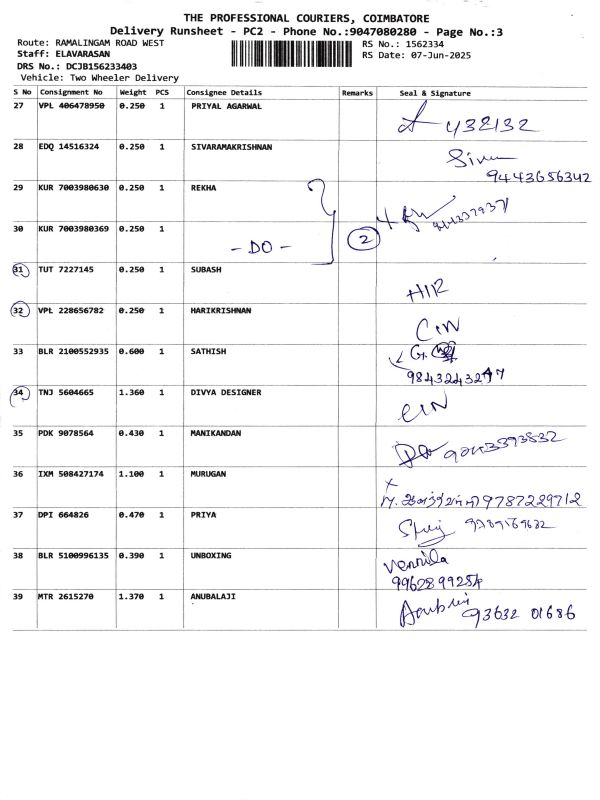 THE PROFESSIONAL COURIERS, COIMBATORE
Delivery Runsheet - PC2 - Phone No.:9047080280 - Page No.:3
Route: RAMALINGAM ROAD WEST
RS No.: 1562334
Staff: ELAVARASAN
RS Date: 07-Jun-2025
DRS No.: DCJB156233403
Vehicle: Two Wheeler Delivery
S No Consignment No Weight PCS Consignee Details Remarks Seal & Signature
27 VPL 406478950 0.250 1 PRIYAL AGARWAL
28 EDQ 14516324 0.250 1 SIVARAMAKRISHNAN
9443656342
29 KUR 7003980630 0.250 1 REKHA
30 KUR 7003980369 0.250 1
- DO - 2
31 TUT 7227145 0.250 1 SUBASH
32 VPL 228656782 0.250 1 HARIKRISHNAN
33 BLR 2100552935 0.600 1 SATHISH
34 TNJ 5604665 1.360 1 DIVYA DESIGNER
35 PDK 9078564 0.430 1 MANIKANDAN
36 IXM 508427174 1.100 1 MURUGAN
9787229712
37 DPI 664826 0.470 1 PRIYA
38 BLR 5100996135 0.390 1 UNBOXING
Vennila
39 MTR 2615270 1.370 1 ANUBALAJI
93632 01686